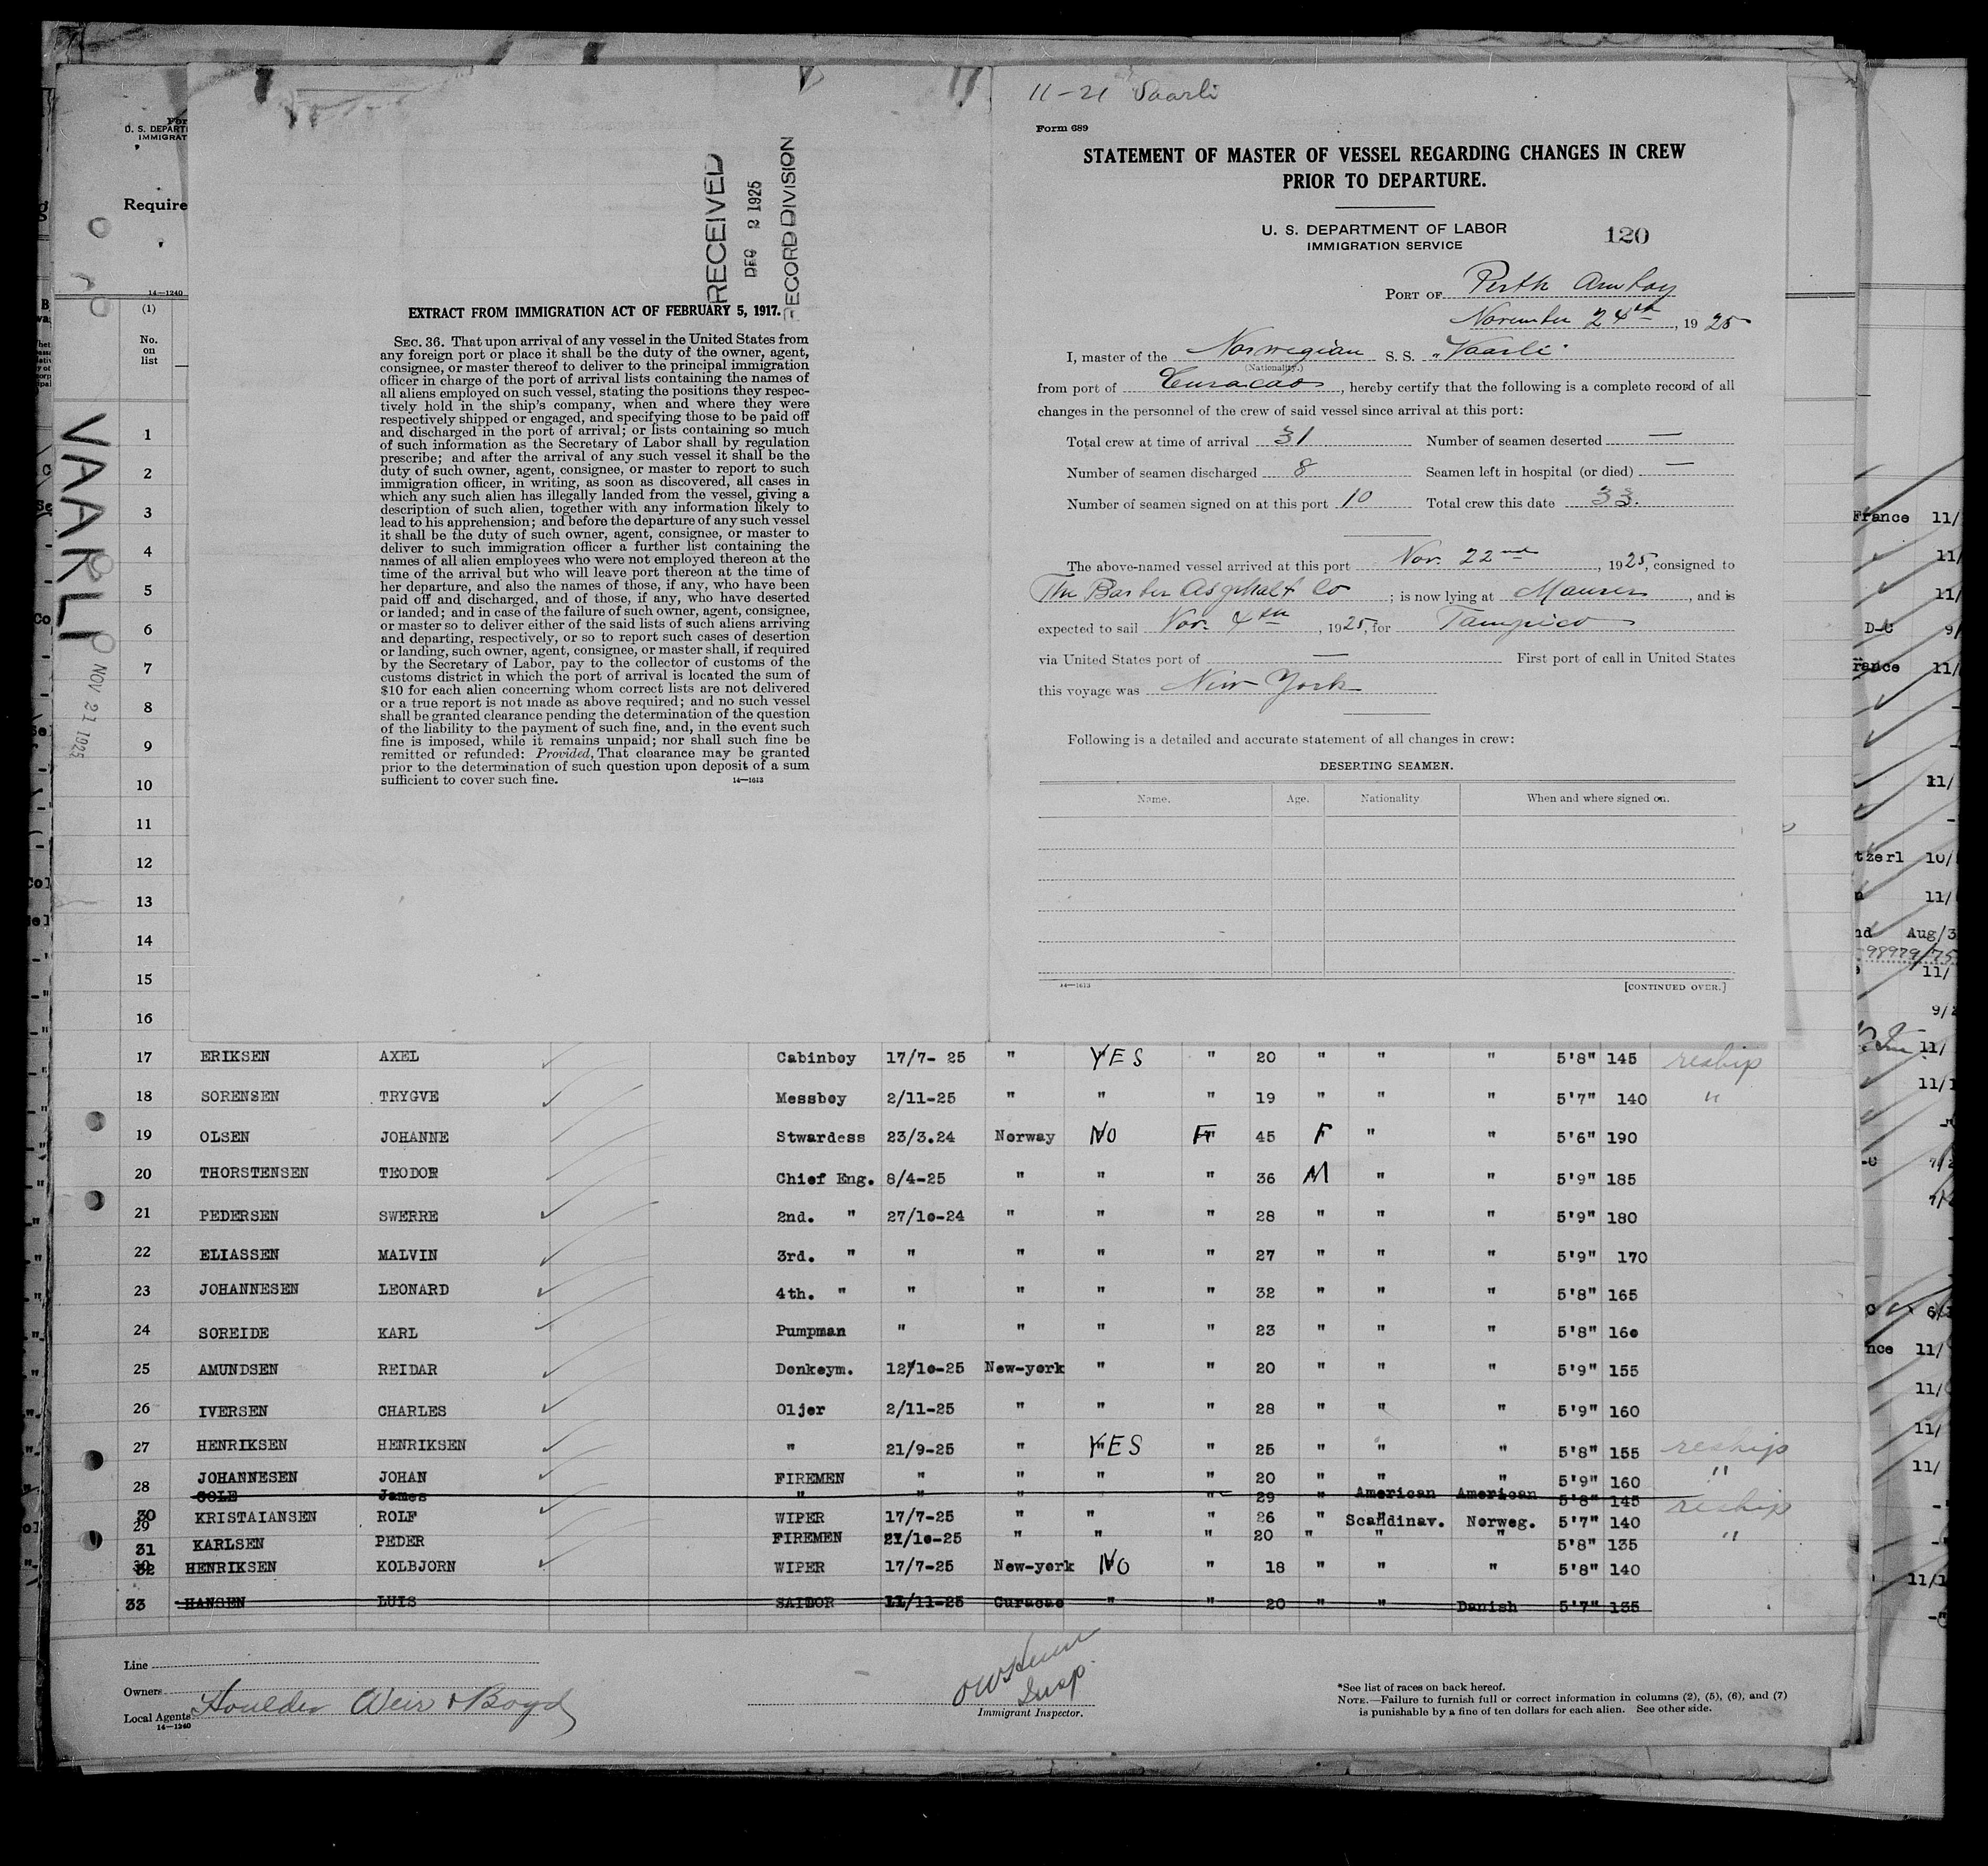 11-21 Vaarli
Form 689
STATEMENT OF MASTER OF VESSEL REGARDING CHANGES IN CREW
PRIOR TO DEPARTURE.
U. S. DEPARTMENT OF LABOR
IMMIGRATION SERVICE
120
PORT OF Perth Amboy
November 24th, 1925
I, master of the Norwegian S. S. "Vaarli"
(Nationality.)
from port of Curacao, hereby certify that the following is a complete record of all
changes in the personnel of the crew of said vessel since arrival at this port:
Total crew at time of arrival 31 Number of seamen deserted —
Number of seamen discharged 8 Seamen left in hospital (or died) —
Number of seamen signed on at this port 10 Total crew this date 33.
The above-named vessel arrived at this port Nov. 22nd, 1925, consigned to
The Barber Asphalt Co; is now lying at Maurer, and is
expected to sail Nov. 4th, 1925, for Tampico
via United States port of — First port of call in United States
this voyage was New York
Following is a detailed and accurate statement of all changes in crew:
DESERTING SEAMEN.
Name. Age. Nationality When and where signed on.
14—1613
[CONTINUED OVER.]
RECEIVED
DEC 2 1925
RECORD DIVISION
EXTRACT FROM IMMIGRATION ACT OF FEBRUARY 5, 1917.
SEC. 36. That upon arrival of any vessel in the United States from
any foreign port or place it shall be the duty of the owner, agent,
consignee, or master thereof to deliver to the principal immigration
officer in charge of the port of arrival lists containing the names of
all aliens employed on such vessel, stating the positions they respec-
tively hold in the ship's company, when and where they were
respectively shipped or engaged, and specifying those to be paid off
and discharged in the port of arrival; or lists containing so much
of such information as the Secretary of Labor shall by regulation
prescribe; and after the arrival of any such vessel it shall be the
duty of such owner, agent, consignee, or master to report to such
immigration officer, in writing, as soon as discovered, all cases in
which any such alien has illegally landed from the vessel, giving a
description of such alien, together with any information likely to
lead to his apprehension; and before the departure of any such vessel
it shall be the duty of such owner, agent, consignee, or master to
deliver to such immigration officer a further list containing the
names of all alien employees who were not employed thereon at the
time of the arrival but who will leave port thereon at the time of
her departure, and also the names of those, if any, who have been
paid off and discharged, and of those, if any, who have deserted
or landed; and in case of the failure of such owner, agent, consignee,
or master so to deliver either of the said lists of such aliens arriving
and departing, respectively, or so to report such cases of desertion
or landing, such owner, agent, consignee, or master shall, if required
by the Secretary of Labor, pay to the collector of customs of the
customs district in which the port of arrival is located the sum of
$10 for each alien concerning whom correct lists are not delivered
or a true report is not made as above required; and no such vessel
shall be granted clearance pending the determination of the question
of the liability to the payment of such fine, and, in the event such
fine is imposed, while it remains unpaid; nor shall such fine be
remitted or refunded: Provided, That clearance may be granted
prior to the determination of such question upon deposit of a sum
sufficient to cover such fine.
14—1613
U. S. DEPART
IMMIGRAT
Require
14—1240
(1)
No.
on
list
VAARLI
NOV 21 1925
1
2
3
4
5
6
7
8
9
10
11
12
13
14
15
16
17 ERIKSEN AXEL Cabinboy 17/7- 25 " YES " 20 " " " 5'8" 145 reship
18 SORENSEN TRYGVE Messboy 2/11-25 " " " 19 " " " 5'7" 140 "
19 OLSEN JOHANNE Stwardess 23/3.24 Norway NO F 45 F " " 5'6" 190
20 THORSTENSEN TEODOR Chief Eng. 8/4-25 " " " 36 M " " 5'9" 185
21 PEDERSEN SWERRE 2nd. " 27/10-24 " " " 28 " " " 5'9" 180
22 ELIASSEN MALVIN 3rd. " " " " " 27 " " " 5'9" 170
23 JOHANNESEN LEONARD 4th. " " " " " 32 " " " 5'8" 165
24 SOREIDE KARL Pumpman " " " " 23 " " " 5'8" 160
25 AMUNDSEN REIDAR Donkeym. 12/10-25 New-york " " 20 " " " 5'9" 155
26 IVERSEN CHARLES Oljer 2/11-25 " " " 28 " " " 5'9" 160
27 HENRIKSEN HENRIKSEN " 21/9-25 " YES " 25 " " " 5'8" 155 reship
28 JOHANNESEN JOHAN FIREMEN " " " " 20 " " " 5'9" 160 "
COLE James " " " " 29 " American American 5'8" 145
30 29 KRISTAIANSEN ROLF WIPER 17/7-25 " " " 26 " Scandinav. Norweg. 5'7" 140 reship
31 KARLSEN PEDER FIREMEN 21/10-25 " " " 20 " " " 5'8" 135 "
32 HENRIKSEN KOLBJORN WIPER 17/7-25 New-york NO " 18 " " " 5'8" 140
33 HANSEN LUIS SAILOR 11/11-25 Curacao " " 20 " " Danish 5'7" 135
Line
Owners
Local Agents Houlder Weir & Boyd
14—1240
Insp.
Immigrant Inspector.
*See list of races on back hereof.
NOTE.—Failure to furnish full or correct information in columns (2), (5), (6), and (7)
is punishable by a fine of ten dollars for each alien. See other side.
France 11/
11/
11/
D-C 9/
rance 11/
11/
tzerl 10/
11/
nd Aug/3
98979/75
11/
9/2
11/
11/1
nce 11/
11/
11/
11/
11/1